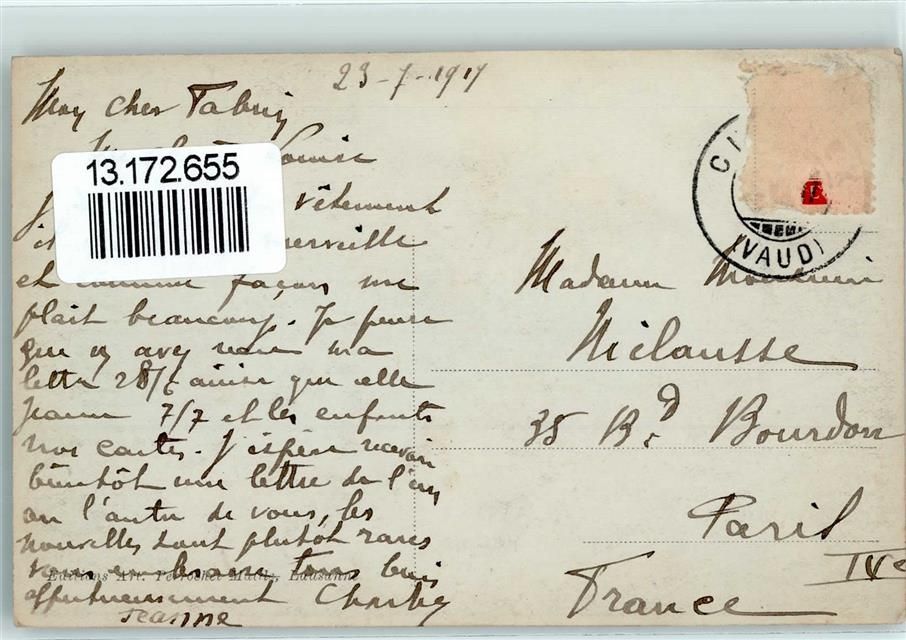 23-7-1917
Mon cher
13.172.655
vêtement
merveille
et comme façon me
plait beaucoup. Je pense
que v avez reçu ma
lettre 28/6 ainsi que celle
Jeanne 7/7 et les enfants
nos cartes. J'espère recevoir
bientôt une lettre de l'un
ou l'autre de vous, les
nouvelles sont plutôt rares
vous embrasse tous bien
affectueusement
Jeanne
Editions Art. Perrochet-Matile, Lausanne
(VAUD)
Madame
Niclausse
35 Bd Bourdon
Paris
IVe
France